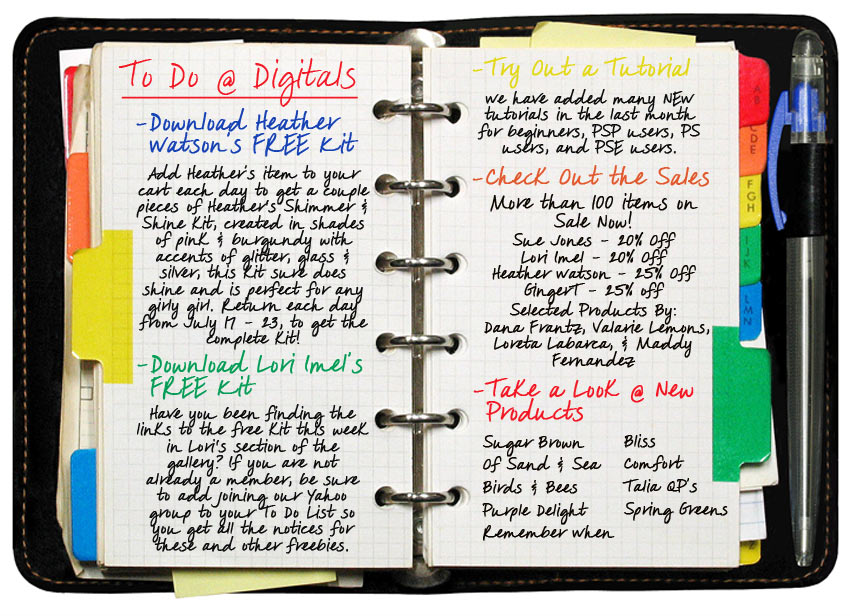 To Do @ Digitals
-Download Heather
Watson's FREE Kit
Add Heather's item to your
cart each day to get a couple
pieces of Heather's Shimmer &
Shine Kit, created in shades
of pink & burgundy with
accents of glitter, glass &
silver, this kit sure does
shine and is perfect for any
girly girl. Return each day
from July 17 - 23, to get the
complete Kit!
-Download Lori Imel's
FREE Kit
Have you been finding the
links to the free kit this week
in Lori's section of the
gallery? If you are not
already a member, be sure
to add joining our Yahoo
group to your To Do List so
you get all the notices for
these and other freebies.
-Try Out a Tutorial
We have added many NEW
tutorials in the last month
for beginners, PSP users, PS
users, and PSE users.
-Check Out the Sales
More than 100 items on
Sale Now!
Sue Jones - 20% Off
Lori Imel - 20% Off
Heather Watson - 25% Off
GingerT - 25% Off
Selected Products By:
Dana Frantz, Valarie Lemons,
Loreta Labarca, & Maddy
Fernandez
-Take a Look @ New
Products
Sugar Brown Bliss
Of Sand & Sea Comfort
Birds & Bees Talia QP's
Purple Delight Spring Greens
Remember When
A B
C D E
F G H
I J K
L M N